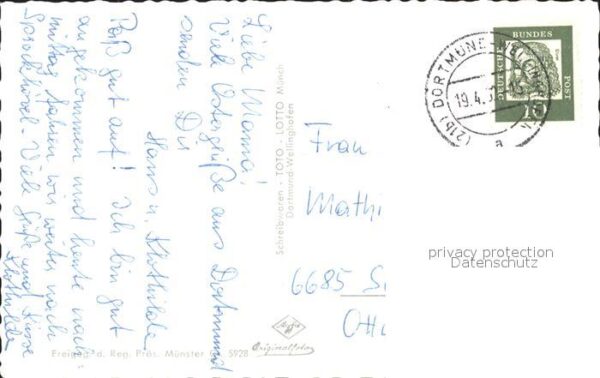 Liebe Mama!
Viele Ostergrüße aus Dortmund
senden Dir
Hans u. Klothilde
Paß gut auf! Ich bin gut
angekommen und heute nach-
mittag fahren wir weiter nach
Sprockhövel - Viele Grüße und Küsse
Klothilde
Schreibwaren · TOTO · LOTTO Münch
Dortmund-Wellinghofen
Frau
Mathi
6685
Ott
DEUTSCHE BUNDESPOST
15
(21b) DORTMUND-WELLINGH
19.4.
a
privacy protection
Datenschutz
Freigeg. d. Reg. Präs. Münster 5928
Agfa
Originalfoto